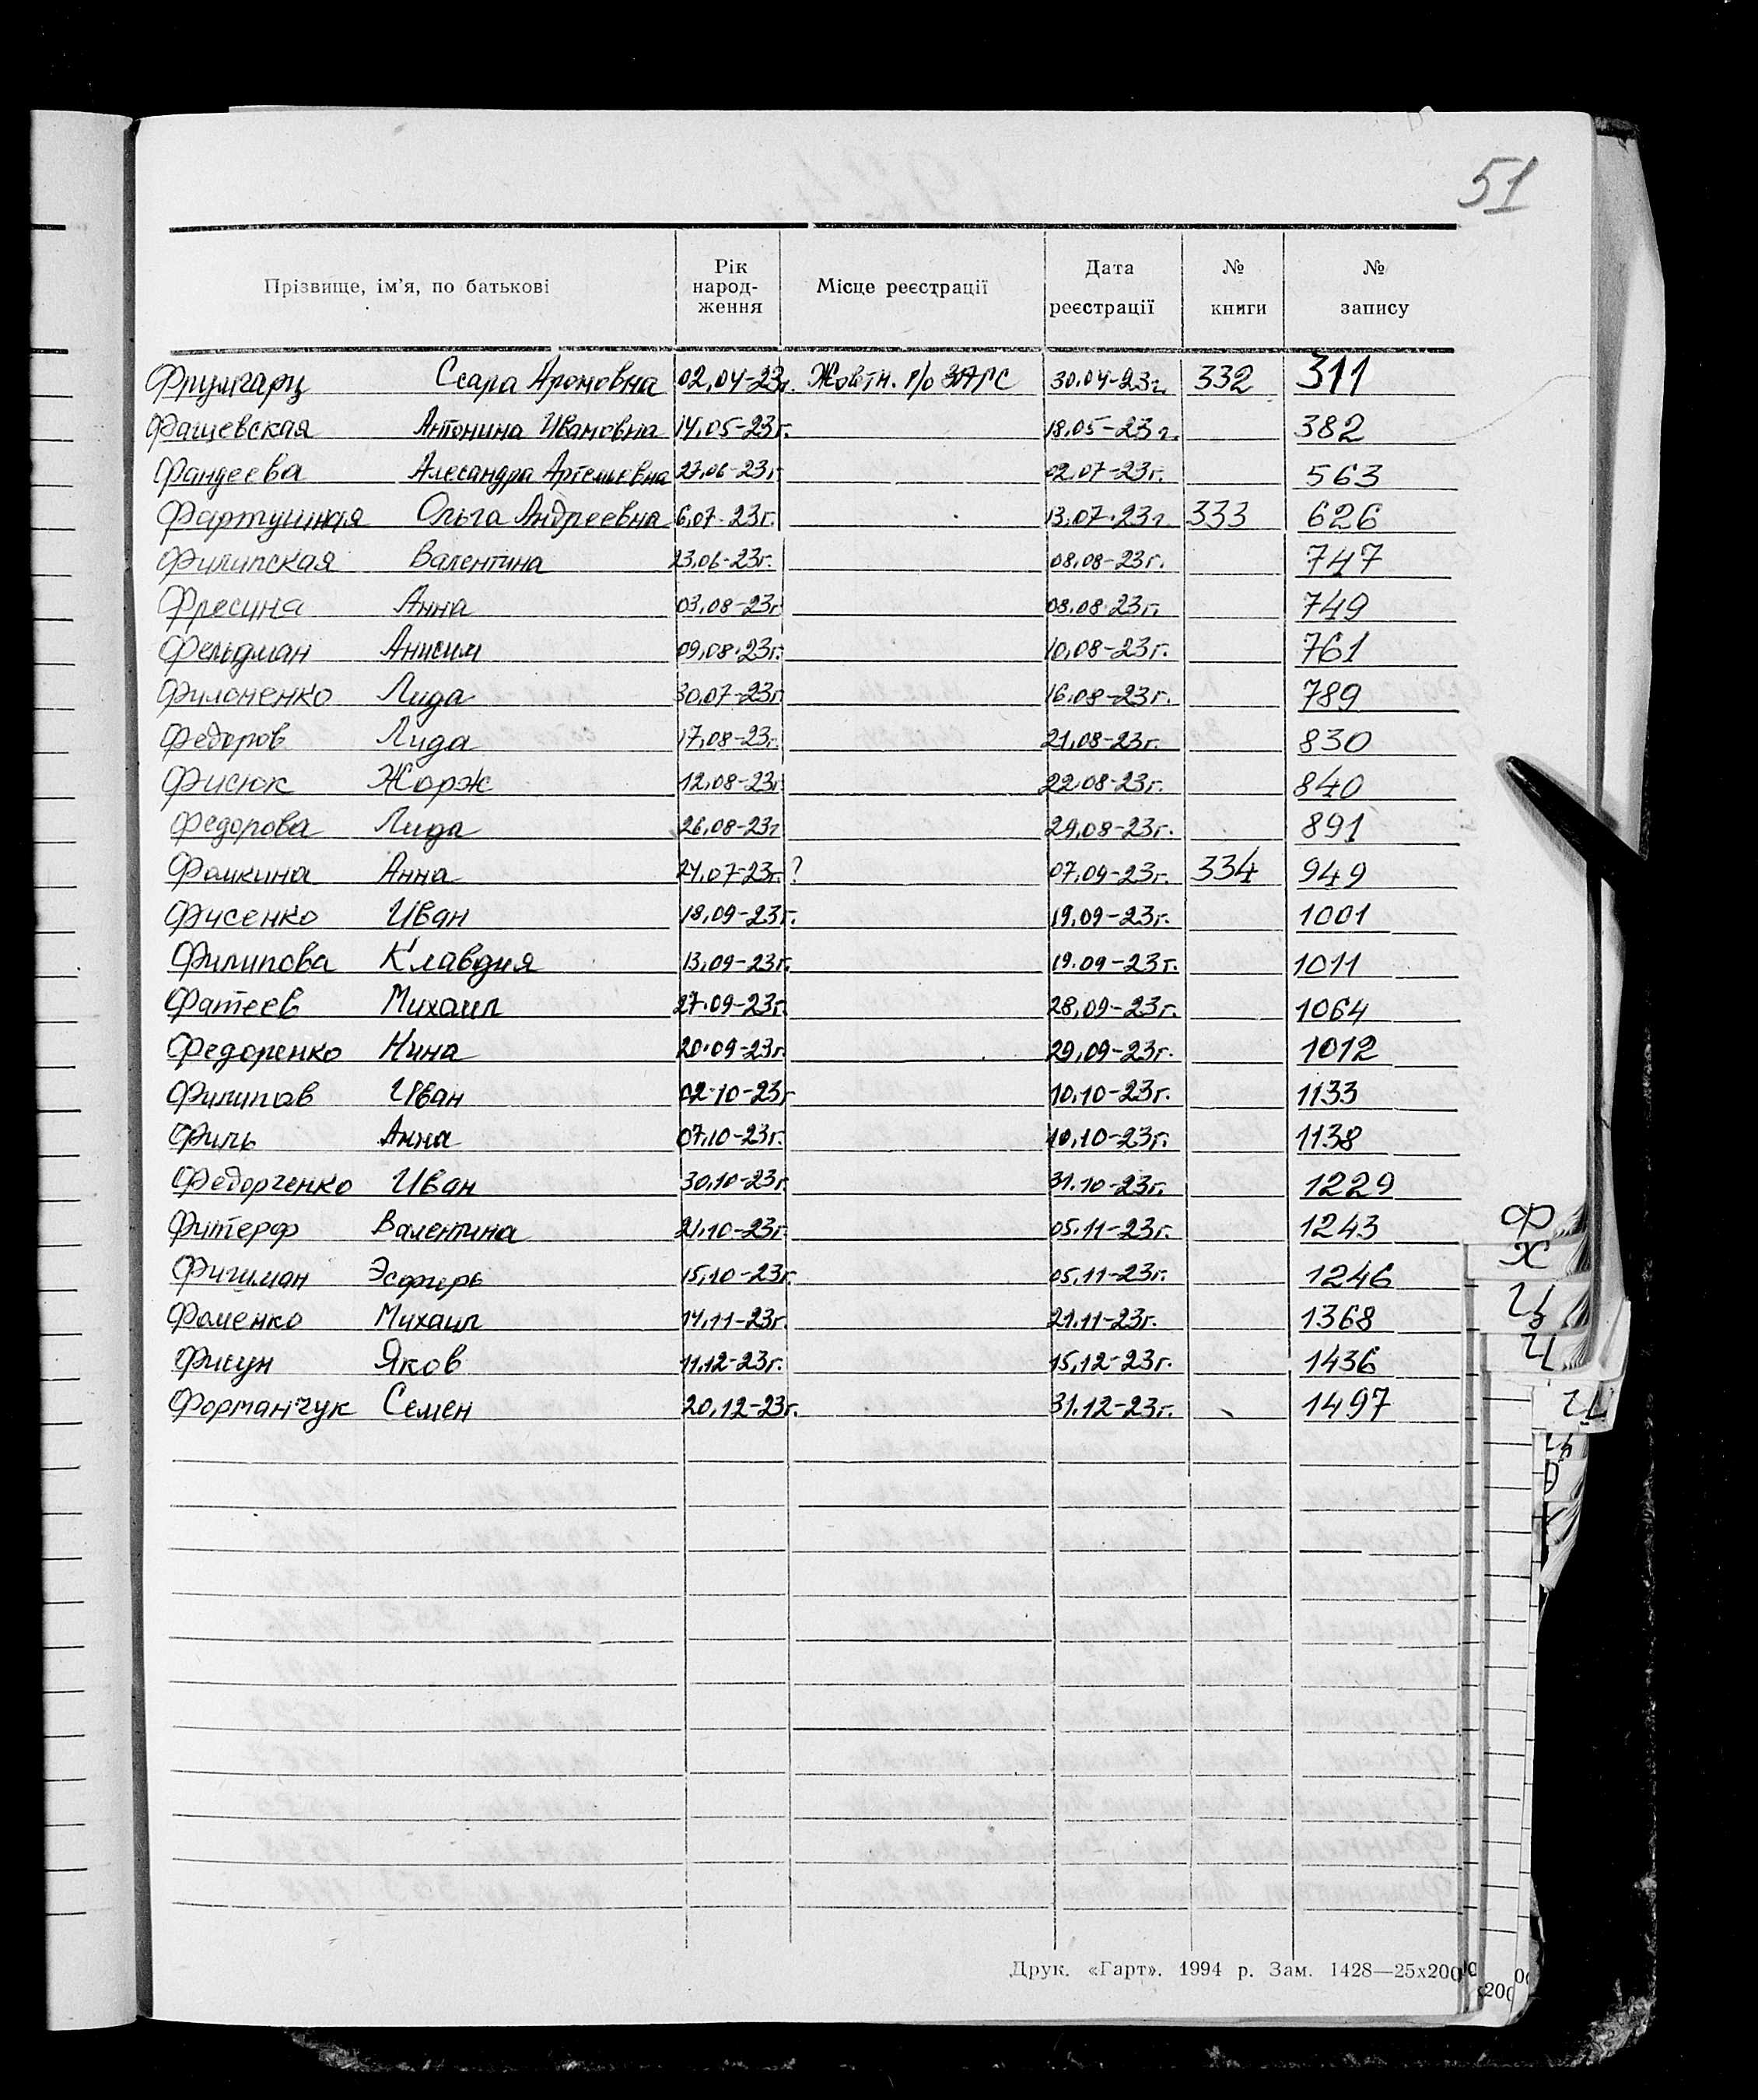 51
Прізвище, ім'я, по батькові Рік народ- ження Місце реєстрації Дата реєстрації № книги № запису
Сара Ароновна 02.04-23г. Жовтн. р/о ЗАГС 30.04-23г. 332 311
Фащевская Антонина Ивановна 14.05-23г. 18.05-23г. 382
Фандеева Алесандра Артемьевна 27.06-23г. 02.07-23г. 563
Ольга Андреевна 6.07-23г. 13.07-23г. 333 626
Филипская Валентина 23.06-23г. 08.08-23г. 747
Фресина Анна 03.08-23г. 08.08-23г. 749
Фельдман Анисим 09.08-23г. 10.08-23г. 761
Филоненко Лида 30.07-23г. 16.08-23г. 789
Федоров Лида 17.08-23г. 21.08-23г. 830
Фисюк Жорж 12.08-23г. 22.08-23г. 840
Федорова Лида 26.08-23г 29.08-23г. 891
Фомкина Анна 24.07-23г. ? 07.09-23г. 334 949
Фисенко Иван 18.09-23г. 19.09-23г. 1001
Филипова Клавдия 13.09-23г. 19.09-23г. 1011
Фатеев Михаил 27.09-23г. 28.09-23г. 1064
Федоренко Нина 20.09-23г. 29.09-23г. 1012
Филипов Иван 02.10-23г 10.10-23г. 1133
Филь Анна 07.10-23г. 10.10-23г. 1138
Федорченко Иван 30.10-23г. 31.10-23г. 1229
Фитерф Валентина 21.10-23г. 05.11-23г. 1243
Фишман Эсфирь 15.10-23г. 05.11-23г. 1246
Фоменко Михаил 14.11-23г. 21.11-23г. 1368
Фисун Яков 11.12-23г. 15.12-23г. 1436
Форманчук Семен 20.12-23г. 31.12-23г. 1497
Ф
Х
Ц
Друк. «Гарт». 1994 р. Зам. 1428—25х200